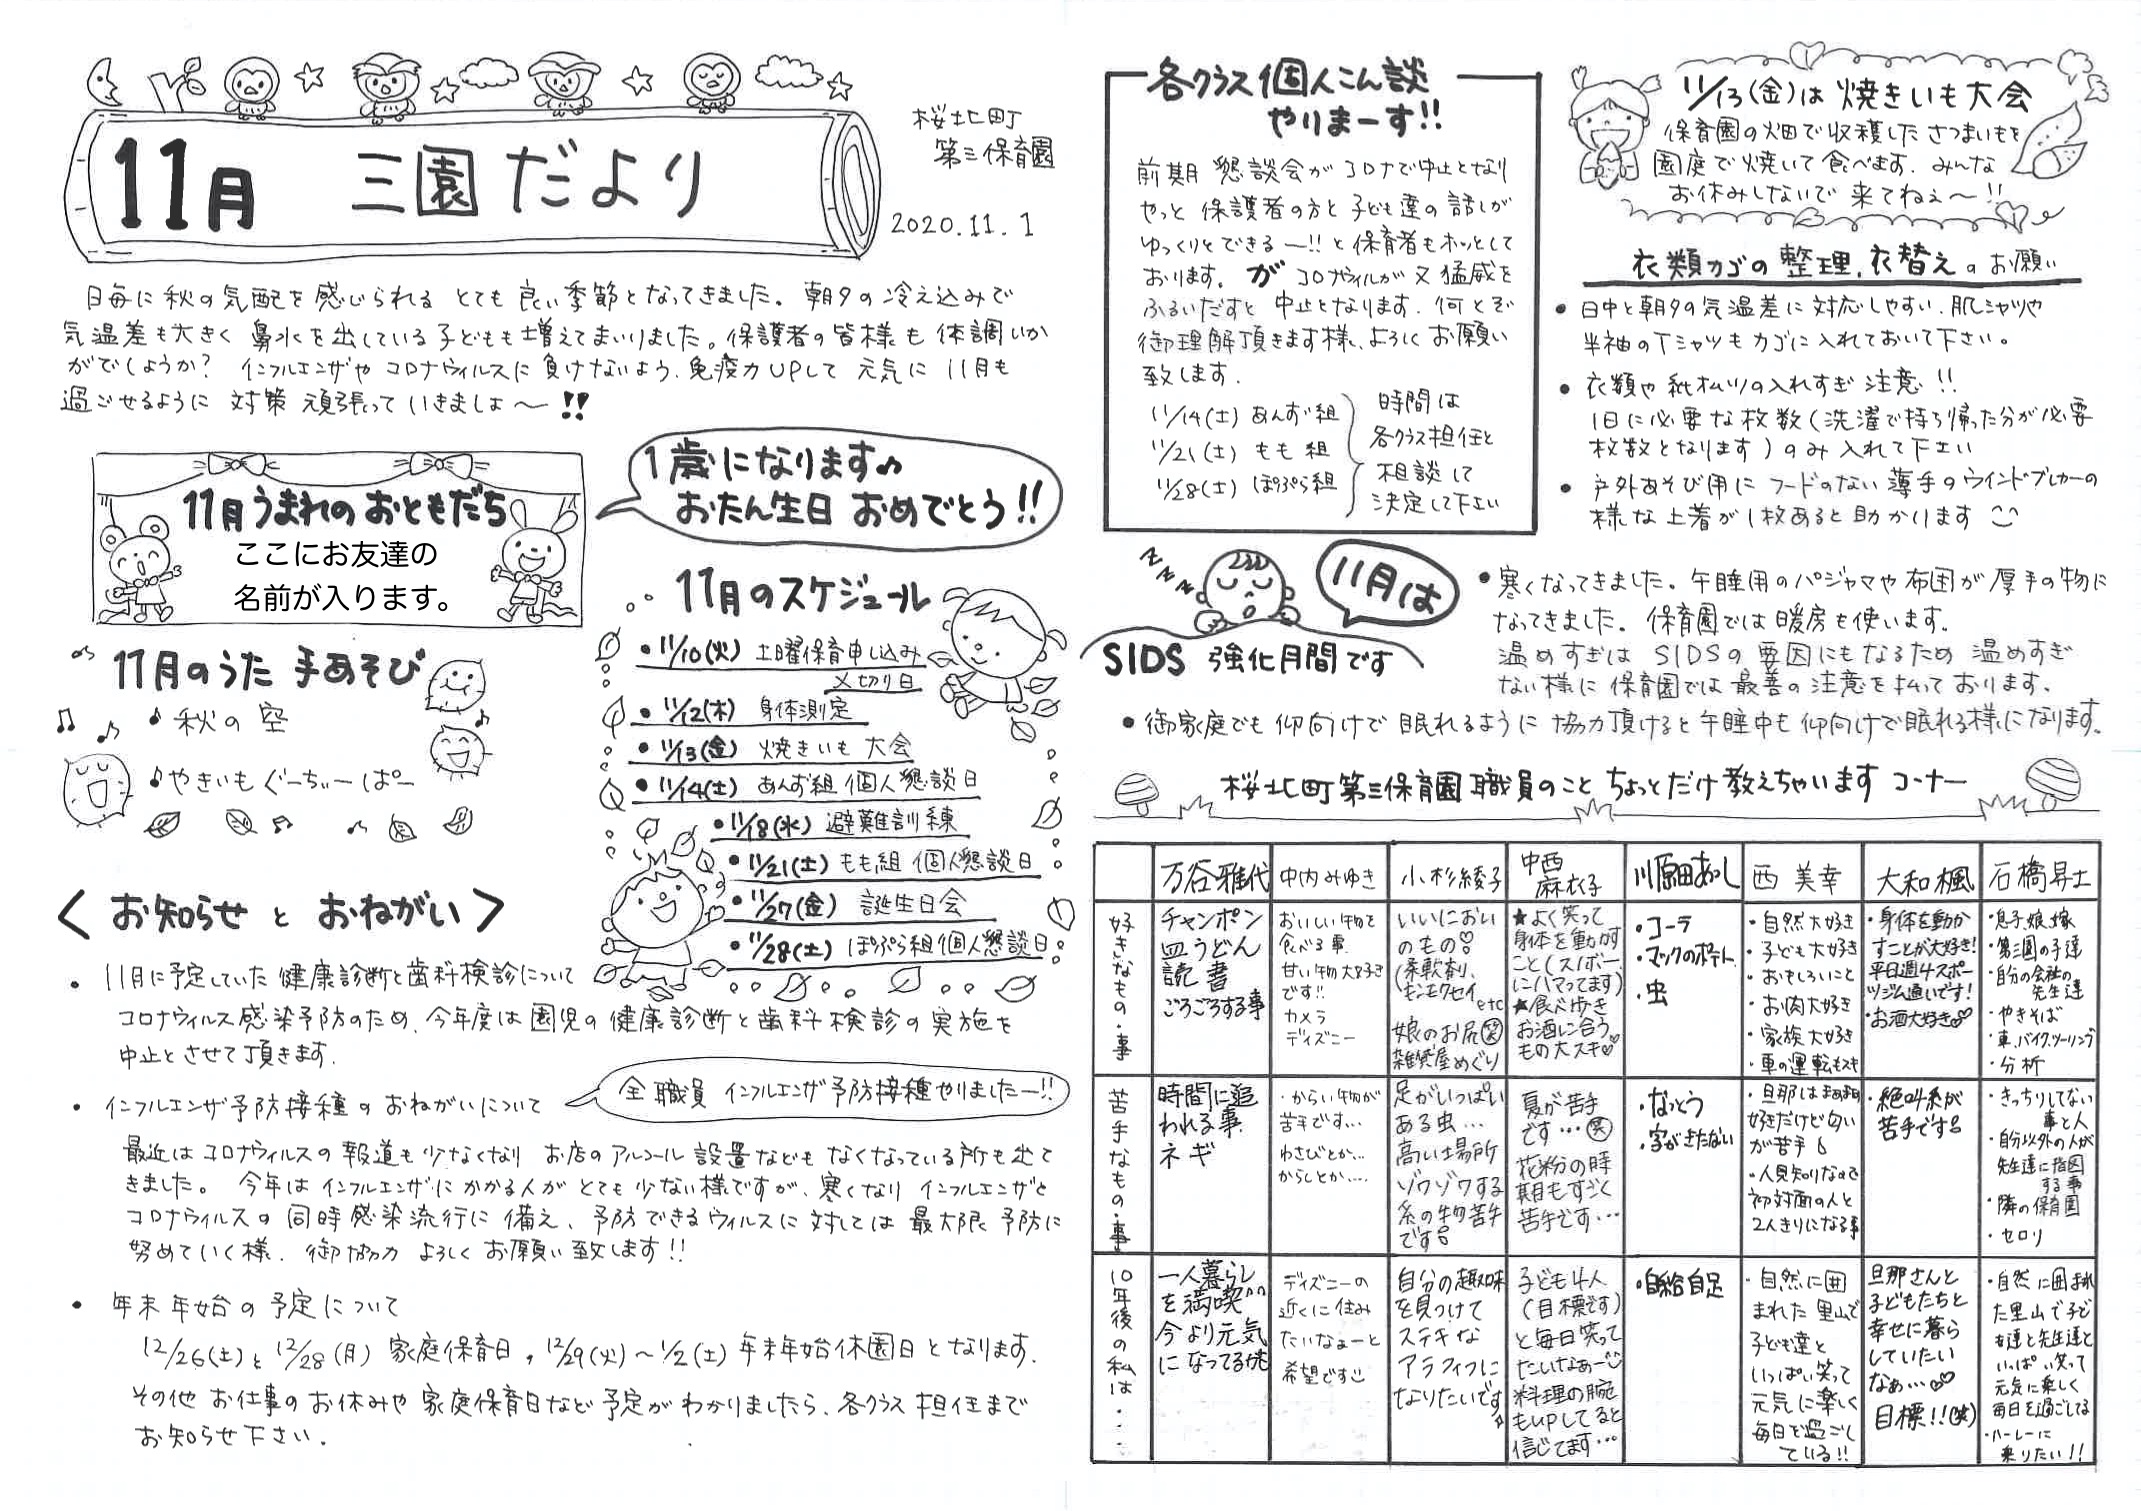 11月 三園だより
桜北町
第三保育園
2020.11.1
日毎に秋の気配を感じられる とても良い季節となってきました。朝夕の冷え込みで
気温差も大きく 鼻水を出している子どもも増えてまいりました。保護者の皆様も体調いか
がでしょうか? インフルエンザや コロナウィルスに負けないよう、免疫力UPして 元気に 11月も
過ごせるように 対策 頑張っていきましょ〜!!
11月うまれのおともだち
ここにお友達の
名前が入ります。
1歳になります♪
おたん生日 おめでとう!!
11月のうた 手あそび
♪ 秋の空
♪やきいもぐーちーぱー
11月のスケジュール
・11/10(火) 土曜保育申し込み
〆切り日
・11/12(木) 身体測定
・11/13(金) 焼きいも大会
・11/14(土) あんず組 個人懇談日
・11/18(水) 避難訓練
・11/21(土) もも組 個人懇談日
・11/27(金) 誕生日会
・11/28(土) ぽぷら組個人懇談日
<お知らせ と おねがい>
・11月に予定していた 健康診断と歯科検診について
コロナウィルス感染予防のため、今年度は園児の健康診断と歯科検診の実施を
中止とさせて頂きます。
・インフルエンザ予防接種のおねがいについて
全職員 インフルエンザ予防接種やりましたー!!
最近はコロナウィルスの報道も少なくなり お店のアルコール設置などもなくなっている所も出て
きました。今年はインフルエンザにかかる人がとても少ない様ですが、寒くなり インフルエンザと
コロナウィルスの同時感染流行に備え、予防できるウィルスに対しては最大限予防に
努めていく様、御協力 よろしくお願い致します!!
・年末年始の予定について
12/26(土)と12/28(月) 家庭保育日、12/29(火)〜1/2(土) 年末年始休園日となります。
その他 お仕事のお休みや 家庭保育日など予定がわかりましたら、各クラス担任まで
お知らせ下さい。
各クラス個人こん談
やりまーす!!
前期 懇談会がコロナで中止となり
やっと 保護者の方と子ども達の話しが
ゆっくりとできるー!!と保育者もホッとして
おります。が コロナウィルスが又猛威を
ふるいだすと 中止となります。何とぞ
御理解頂きます様、よろしくお願い
致します。
11/14(土) あんず組
11/21(土) もも組
11/28(土) ぽぷら組
時間は
各クラス担任と
相談して
決定して下さい
11/13(金)は 焼きいも大会
保育園の畑で収穫したさつまいもを
園庭で焼いて食べます。みんな
お休みしないで来てねぇ〜!!
衣類カゴの整理、衣替えのお願い
・日中と朝夕の気温差に対応しやすい、肌シャツや
半袖のTシャツもカゴに入れておいて下さい。
・衣類や紙オムツの入れすぎ注意!!
1日に必要な枚数(洗濯で持ち帰った分が必要
枚数となります)のみ入れて下さい
・戸外あそび用に フードのない薄手のウインドブレーカーの
様な上着が1枚あると助かります
zzzz
11月は
SIDS 強化月間です
・寒くなってきました。午睡用のパジャマや布団が厚手の物に
なってきました。保育園では暖房も使います。
温めすぎは SIDSの要因にもなるため 温めすぎ
ない様に 保育園では最善の注意を払っております。
・御家庭でも仰向けで眠れるように協力頂けると午睡中も仰向けで眠れる様になります。
桜北町第三保育園職員のこと ちょっとだけ教えちゃいます コーナー
万谷雅代 中内みゆき 小杉綾子 中西麻衣子 川原田あつし 西美幸 大和楓 石橋昇士
好きなもの・事
チャンポン
皿うどん
読書
ごろごろする事
おいしい物を
食べる事
甘い物大好き
です!!
カメラ
ディズニー
いいにおい
のもの♡
(柔軟剤、
キンモクセイ
etc
娘のお尻(笑)
雑貨屋めぐり
★よく笑って
身体を動かす
こと(スノボー
にハマってます)
★食べ歩き
お酒に合う
もの大スキ♡
・コーラ
・マックのポテト
・虫
・自然大好き
・子ども大好き
・おもしろいこと
・お肉大好き
・家族大好き
・車の運転もスキ
・身体を動か
すことが大好き!
平日週4スポー
ツジム通いです!
・お酒大好き♡
・息子、娘、嫁
・第三園の子達
・自分の会社の
先生達
・やきそば
・車、バイク、ツーリング
・分析
苦手なもの・事
時間に追
われる事
ネギ
・からい物が
苦手です…
わさびとか…
からしとか….
足がいっぱい
ある虫…
高い場所
ゾワゾワする
系の物苦手
です
夏が苦手
です…(笑)
花粉の時
期もすごく
苦手です…
・なっとう
・字がきたない
・旦那は
好きだけど匂い
が苦手
・人見知りなので
初対面の人と
2人きりになる事
・絶叫系が
苦手です
・きっちりしてない
事と人
・自分以外の人が
先生達に指図
する事
・隣の保育園
・セロリ
10年後の私は・・・・
一人暮らし
を満喫
今より元気
になってるかも
ディズニーの
近くに住み
たいなぁーと
希望です
自分の趣味
を見つけて
ステキな
アラフィフに
なりたいです
子ども4人
(目標です)
と毎日笑って
たいなぁー
料理の腕
もUPしてると
信じてます…
・自給自足
・自然に囲
まれた里山で
子ども達と
いっぱい笑って
元気に楽しく
毎日を過ごし
ている!!
旦那さんと
子どもたちと
幸せに暮ら
していたい
なぁ…♡
目標!!(笑)
・自然に囲まれ
た里山で子ど
も達と先生達と
いっぱい笑って
元気に楽しく
毎日を過ごしてる
・ハーレーに
乗りたい!!